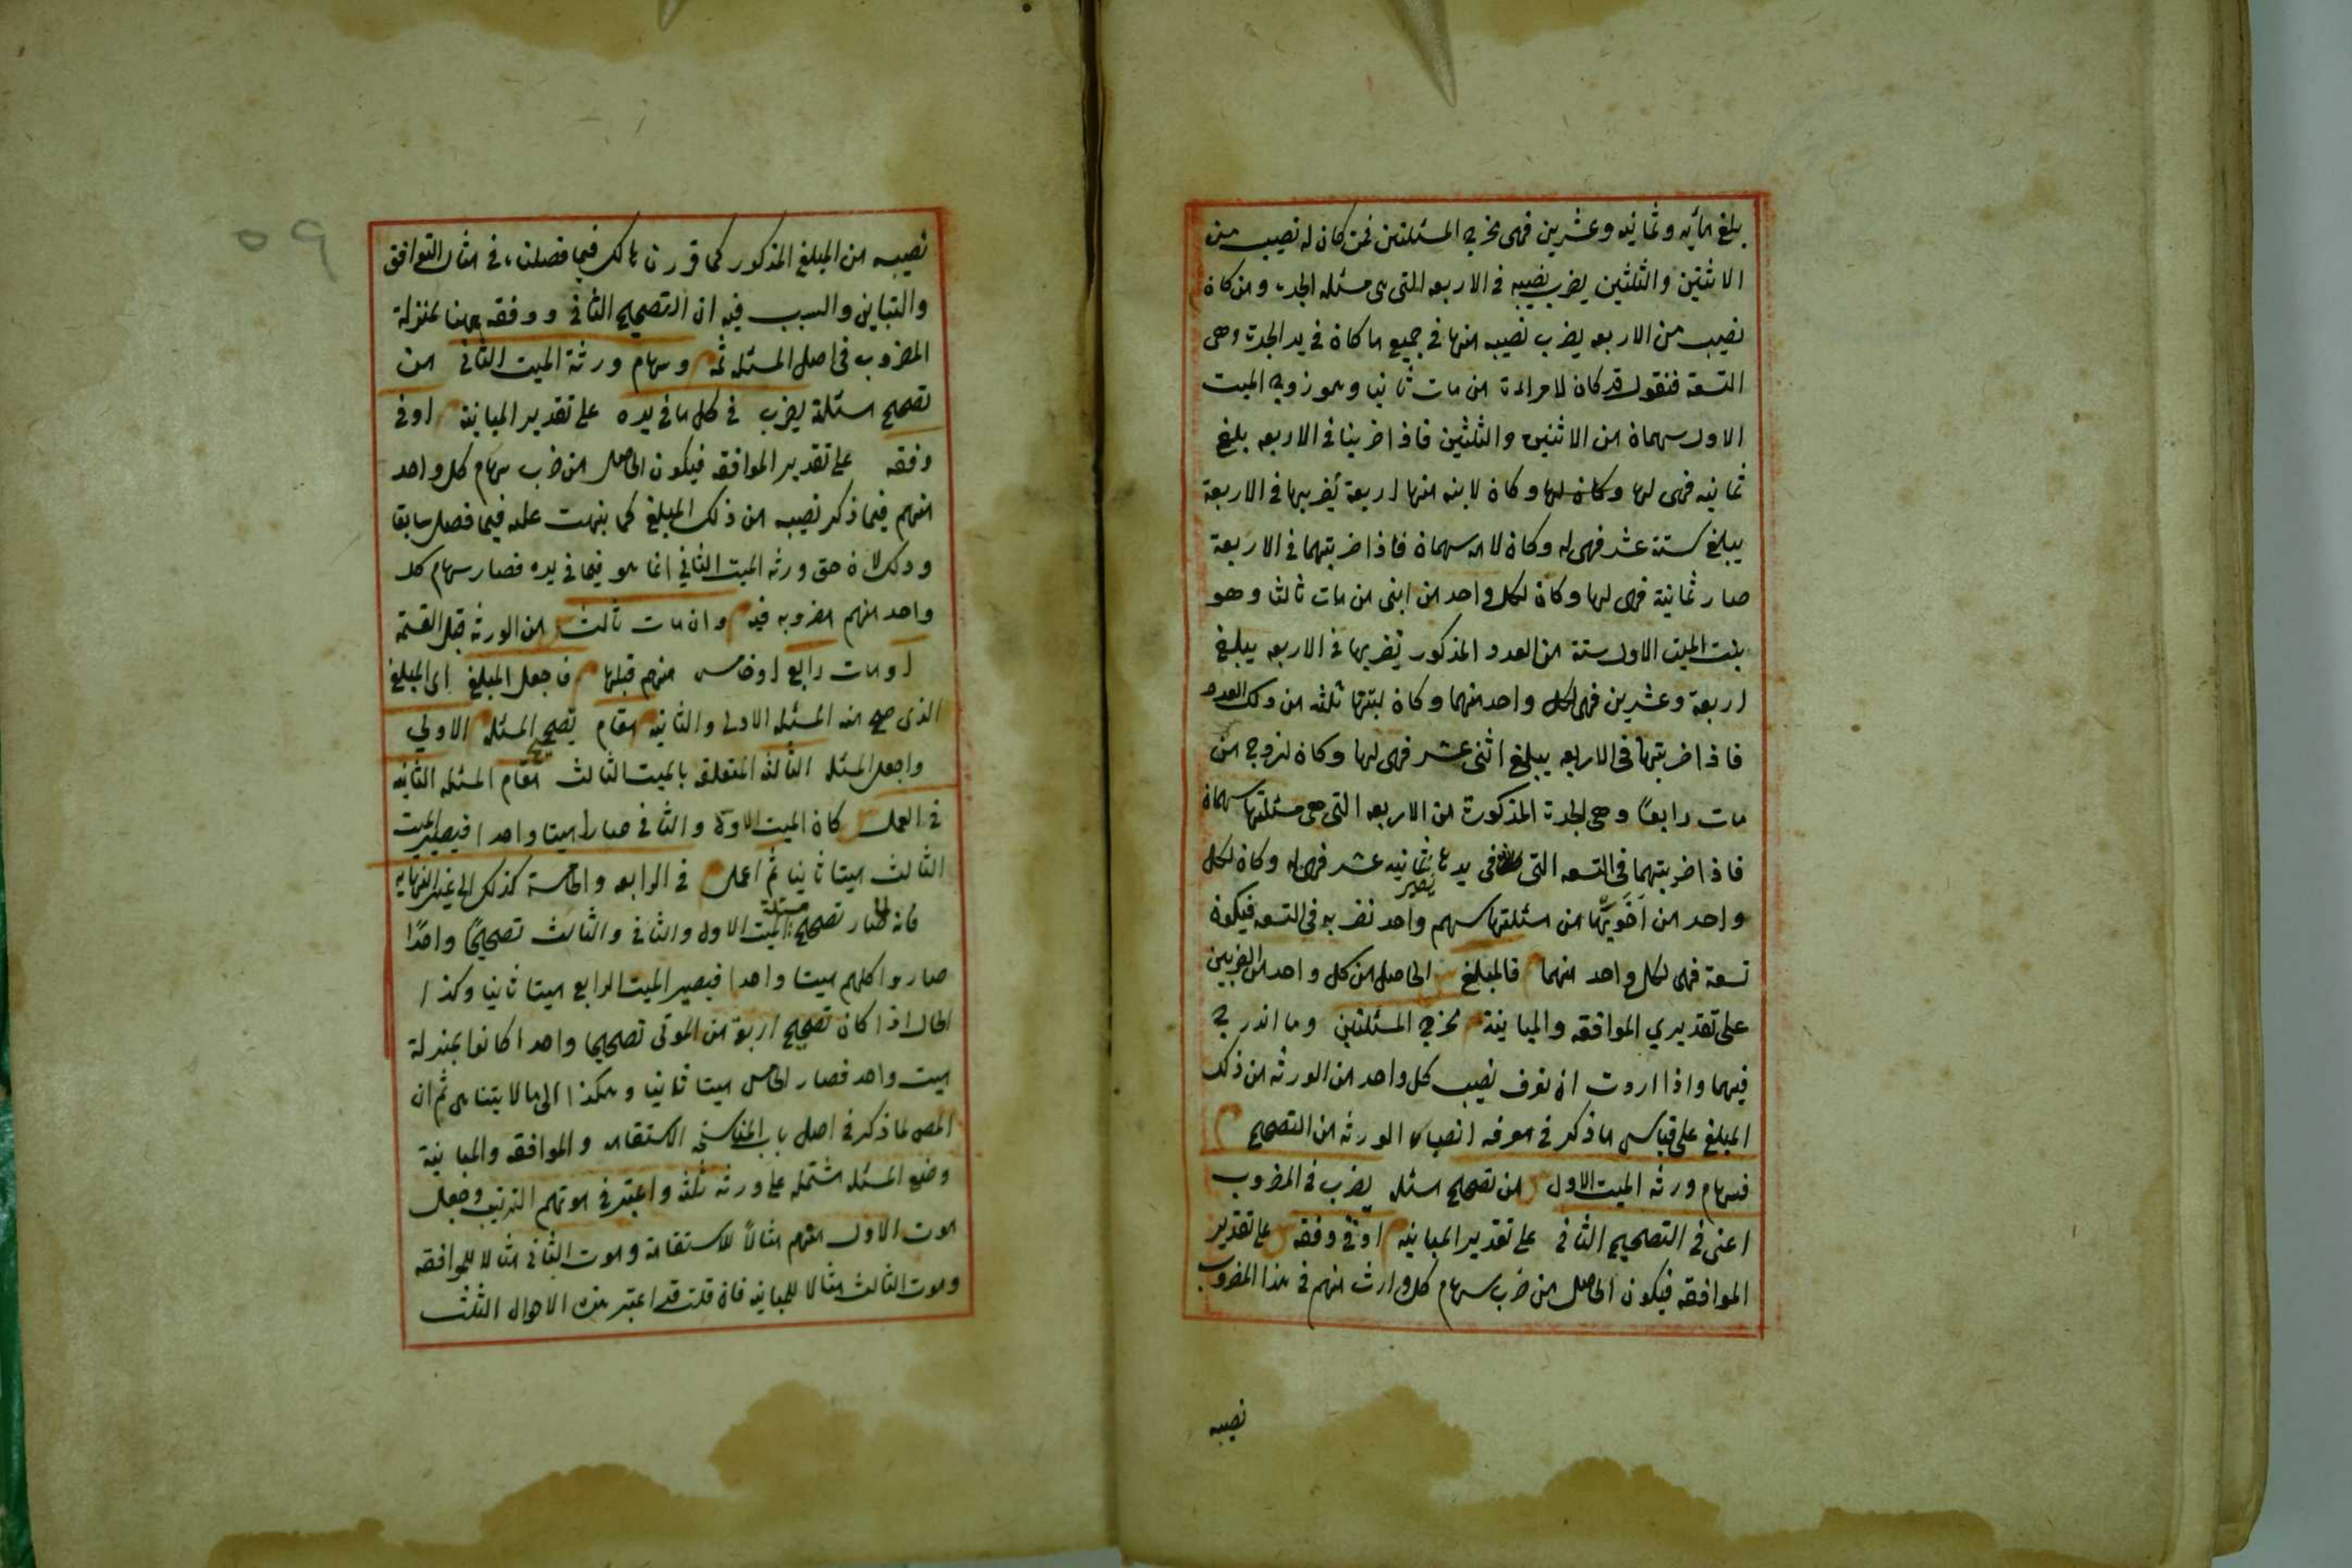 يبلغ مأيه وثمانيه وعشرين فهى مخرج المسئلتين فمن كان له نصيب من
الاثنتين والثلثين يضرب نصيبه فى الاربعه التى هى مسئله الجده ومن كان
نصيب من الاربعه يضرب نصيبه منها فى جميع ما كان فى يد الجدة وهى
التسعة فنقول قد كان لامراءة من مات ثانيا وهو زوج الميت
الاول سهمان من الاثنين والثلثين فاذا ضربنا فى الاربعه بلغ
ثمانيه فهى لها وكان لها وكان لابنه منها اربعة نضربها فى الاربعة
يبلغ ستة عشر فهى له وكان لامه سهمان فاذا ضربتهما فى الاربعة
صار ثمانية فهى لها وكان لكل واحد من ابنى من مات ثالثا وهو
بنت الميت الاول ستة من العدد المذكور نضربها فى الاربعه يبلغ
اربعة وعشرين فهى لكل واحد منهما وكان لبنتها ثلثه من ذلك العدد
فاذا ضربتها فى الاربعه يبلغ اثنى عشر فهى لها وكان لزوج من
مات رابعًا وهى الجدة المذكورة من الاربعه التى هى مسئلتها سهمان
فاذا ضربتهما فى التسعه التى فى يدها يصير ثمانيه عشر فهى له وكان لكل
واحد من اخويها من مسئلتها سهم واحد نضربه فى التسعه فيكون
تسعة فهى لكل واحد منهما فالمبلغ الحاصل من كل واحد من الضربين
على تقديري الموافقه والمباينة مخرج المسئلتين وما اندرج
فيهما واذا اردت ان نعرف نصيب كل واحد من الورثه من ذلك
المبلغ على قياس ما ذكر فى معرفه انصباء الورثه من التصحيح
فسهام ورثه الميت الاول من تصحيح مسئله يضرب فى المضروب
اعنى فى التصحيح الثانى على تقدير المباينه او فى وفقه على تقدير
الموافقه فيكون الحاصل من ضرب سهام كل وارث منهم فى هذا المضروب
نصيبه
٥٩
نصيبه من المبلغ المذكور كما قررناه لك فيما فصلناه فى مثال التوافق
والتباين والسبب فيه ان التصحيح الثانى ووفقه ههنا بمنزلة
المضروب فى اصل المسئله ثمه وسهام ورثة الميت الثانى من
تصحيح مسئلة يضرب فى كل ما فى يده على تقدير المباينة او فى
وفقه على تقدير الموافقه فيكون الحاصل من ضرب سهام كل واحد
منهم فيما ذكر نصيبه من ذلك المبلغ كما بنهت عليه فيما فصل سابقا
وذلك لان حق ورثه الميت الثاني انما هو فيما فى يده فصار سهام كل
واحد منهم مضروبه فيه وان مات ثالث من الورثه قبل القسمة
او مات رابع او خامس منهم قبلها فاجعل المبلغ اى المبلغ
الذى صح منه المسئله الاولى والثانيه مقام تصحيح المسئله الاولي
واجعل المسئله الثالثه المتعلقه بالميت الثالث مقام المسئله الثانيه
فى العمل كان الميت الاول والثانى صارا ميتا واحدا فيصير الميت
الثالث ميتا ثانيا ثم اعمل فى الرابعه والخامسة كذلك الى غير النهايه
فانه لما صار تصحيح مسئلة الميت الاول والثانى والثالث تصحيحًا واحدًا
صاروا كلهم ميتا واحدا فيصير الميت الرابع ميتا ثانيا وكذا
الحال اذا كان تصحيح اربعة من الموتى تصحيحا واحدا كانوا بمنزلة
ميت واحد فصار الخامس ميتا ثانيا وهكذا الى ما لا يتناهى ثم ان
المصر لما ذكر فى اصل باب المناسخه الاستقامه والموافقه والمباينة
وضع المسئله مشتمله على ورثه ثلثه واعتبر فى موتهم الترتيب وجعل
موت الاول منهم مثالاً للاستقامة وموت الثانى مثالا للموافقه
وموت الثالث مثالا للمباينه فان قلت قد اعتبر هذه الاحوال الثلث